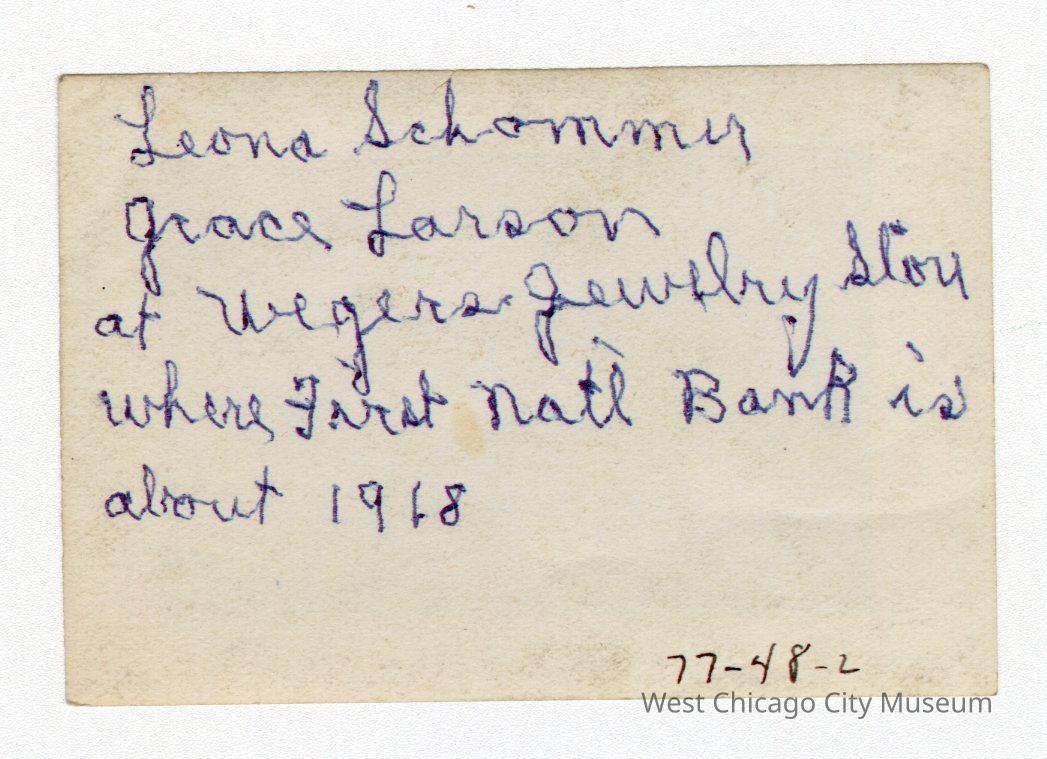 Leona Schommer
Grace Larson
at Wegers Jewelry Store
where First Nat'l Bank is
about 1918
77-48-2
West Chicago City Museum